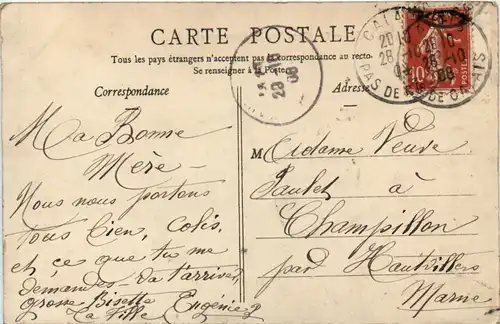 CARTE POSTALE
Tous les pays étrangers n'acceptent pas la Correspondance au recto
Se renseigner à la Poste
Correspondance
Adresse
CALAIS
PAS DE CALAIS
28-10
08
10
POSTES
Ma Bonne
Mère -
Nous nous portons
tous bien, Colis,
et ce que tu me
demandes - va t'arriver,
grosse Bisette
ta fille Eugénie
Madame Veuve
Paulet à
Champillon
par Hautvillers
Marne